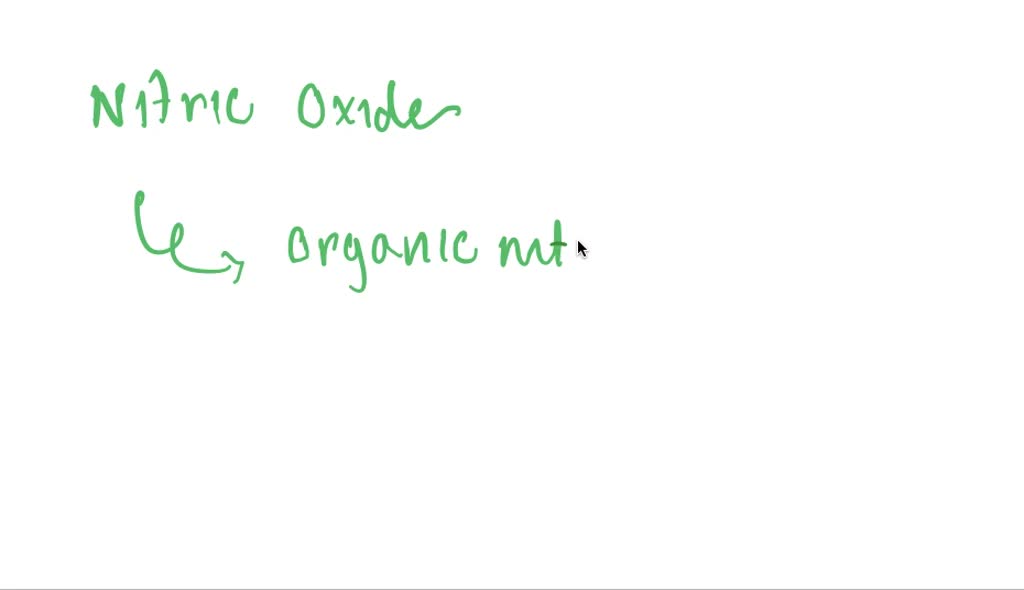 Nitric Oxide
organic nit